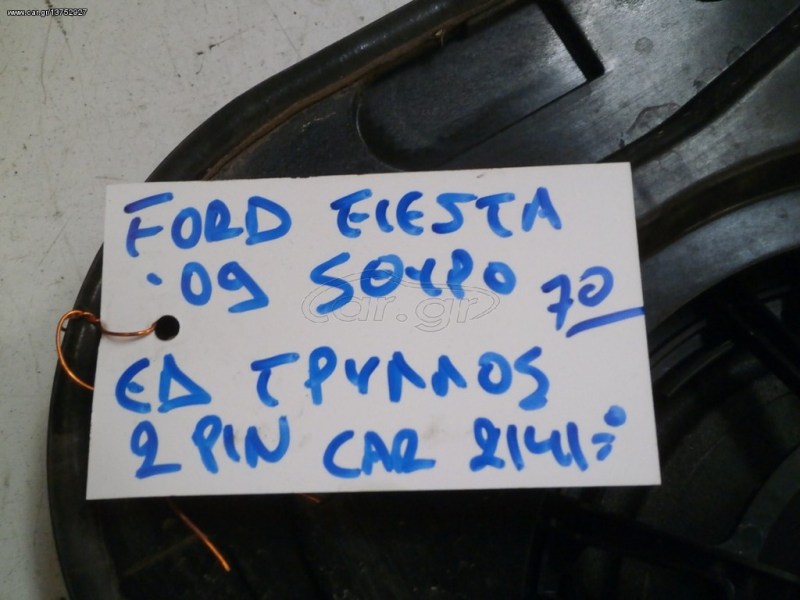 www.car.gr/13752927
FORD FIESTA
'09 5ΘΥΡΟ 70
car.gr
ΕΔ ΤΡΥΛΛΟΣ
2 PIN CAR 2141